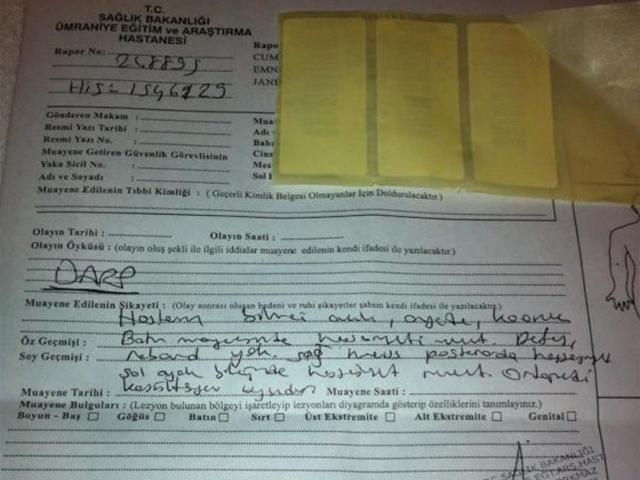 T.C.
SAĞLIK BAKANLIĞI
ÜMRANİYE EĞİTİM ve ARAŞTIRMA
HASTANESİ
Rapor No:
His: 1546729
Rapo
CUM
EMN
JAND
Gönderen Makam :
Resmi Yazı Tarihi :
Resmi Yazı No. :
Muayene Getiren Güvenlik Görevlisinin
Yaka Sicil No :
Adı ve Soyadı :
Mua
Adı
Baba
Cins
Mes
Sol
Muayene Edilenin Tıbbi Kimliği : ( Geçerli Kimlik Belgesi Olmayanlar İçin Doldurulacaktır.)
Olayın Tarihi : Olayın Saati :
Olayın Öyküsü : (olayın oluş şekli ile ilgili iddialar muayene edilenin kendi ifadesi ile yazılacaktır.)
DARP
Muayene Edilenin Şikayeti : (Olay sonrası oluşan bedeni ve ruhi şikayetler şahsın kendi ifadesi ile yazılacaktır.)
Hastanın bilinci açık, oryente, koopere
Öz Geçmişi : Batın muayenesinde hassasiyeti mevcut. Defans,
Soy Geçmişi : rebound yok. sağ
sol ayak hassasiyet mevcut. Ortopedi
Muayene Tarihi : Muayene Saati :
Muayene Bulguları : (Lezyon bulunan bölgeyi işaretleyip lezyonları diyagramda gösterip özelliklerini tanımlayınız.)
Boyun - Baş Göğüs Batın Sırt Üst Ekstremite Alt Ekstremite Genital
SAĞLIK BAKANLIĞI